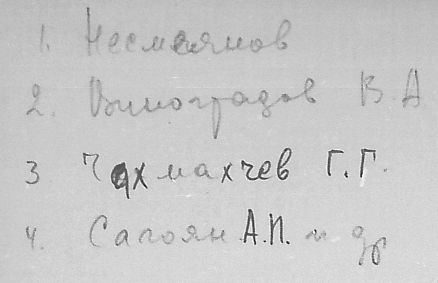 1. Несмеянов
2. Виноградов В.А
3 Чахмахчев Г.Г.
4. Сагоян А.И. и др